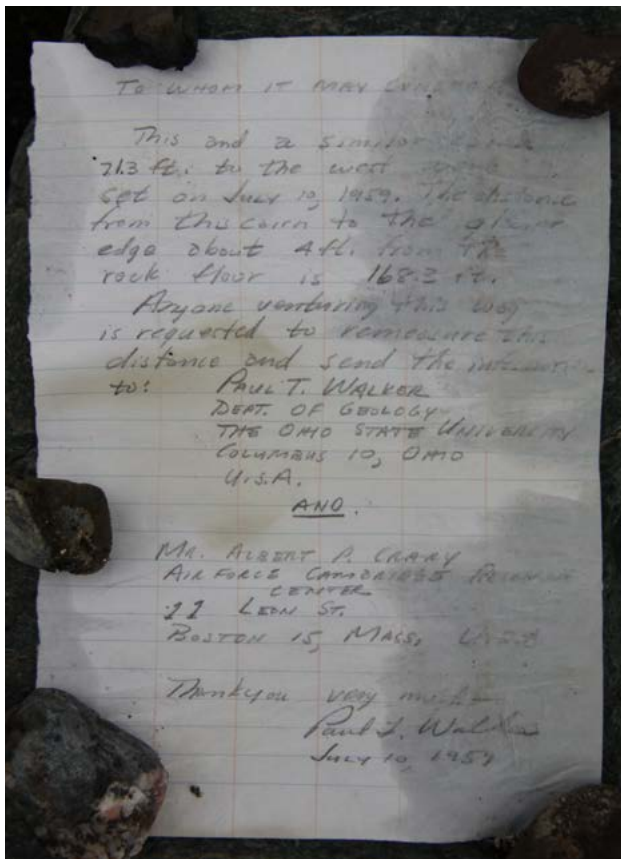 TO WHOM IT MAY CONCERN
This and a similar cairn
21.3 ft. to the west were
set on July 10, 1959. The distance
from this cairn to the glacier
edge about 4 ft. from the
rock floor is 168.3 ft.
Anyone venturing this way
is requested to remeasure this
distance and send the information
to: PAUL T. WALKER
DEPT. OF GEOLOGY
THE OHIO STATE UNIVERSITY
COLUMBUS 10, OHIO
U.S.A.
AND.
MR. ALBERT P. CRARY
AIR FORCE CAMBRIDGE RESEARCH
CENTER
11 LEON ST.
BOSTON 15, MASS, U.S.A
Thankyou very much
Paul T. Walker
JULY 10, 1959